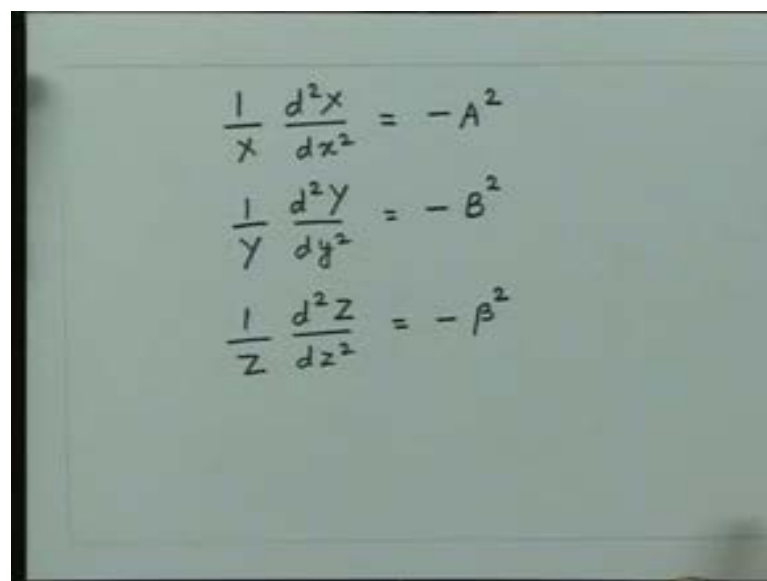 1/X d²X/dx² = - A²
1/Y d²Y/dy² = - B²
1/Z d²Z/dz² = - β²